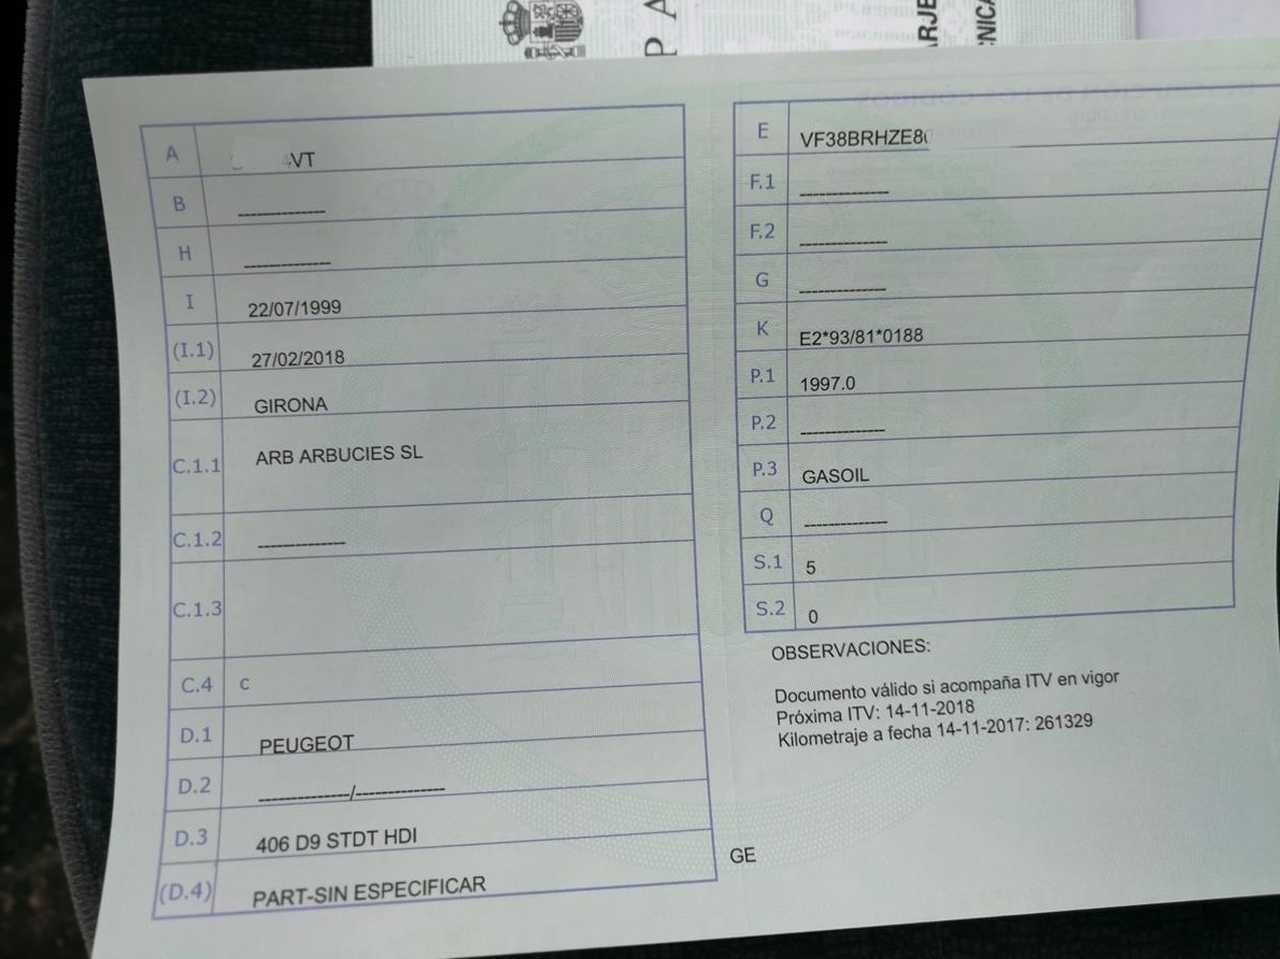 PA
ARJE
NICA
A VT
B -------------
H -------------
I 22/07/1999
(I.1) 27/02/2018
(I.2) GIRONA
C.1.1 ARB ARBUCIES SL
C.1.2 -------------
C.1.3
C.4 C
D.1 PEUGEOT
D.2 -------------/-------------
D.3 406 D9 STDT HDI
(D.4) PART-SIN ESPECIFICAR
E VF38BRHZE8
F.1 -------------
F.2 -------------
G -------------
K E2*93/81*0188
P.1 1997.0
P.2 -------------
P.3 GASOIL
Q -------------
S.1 5
S.2 0
OBSERVACIONES:
Documento válido si acompaña ITV en vigor
Próxima ITV: 14-11-2018
Kilometraje a fecha 14-11-2017: 261329
GE